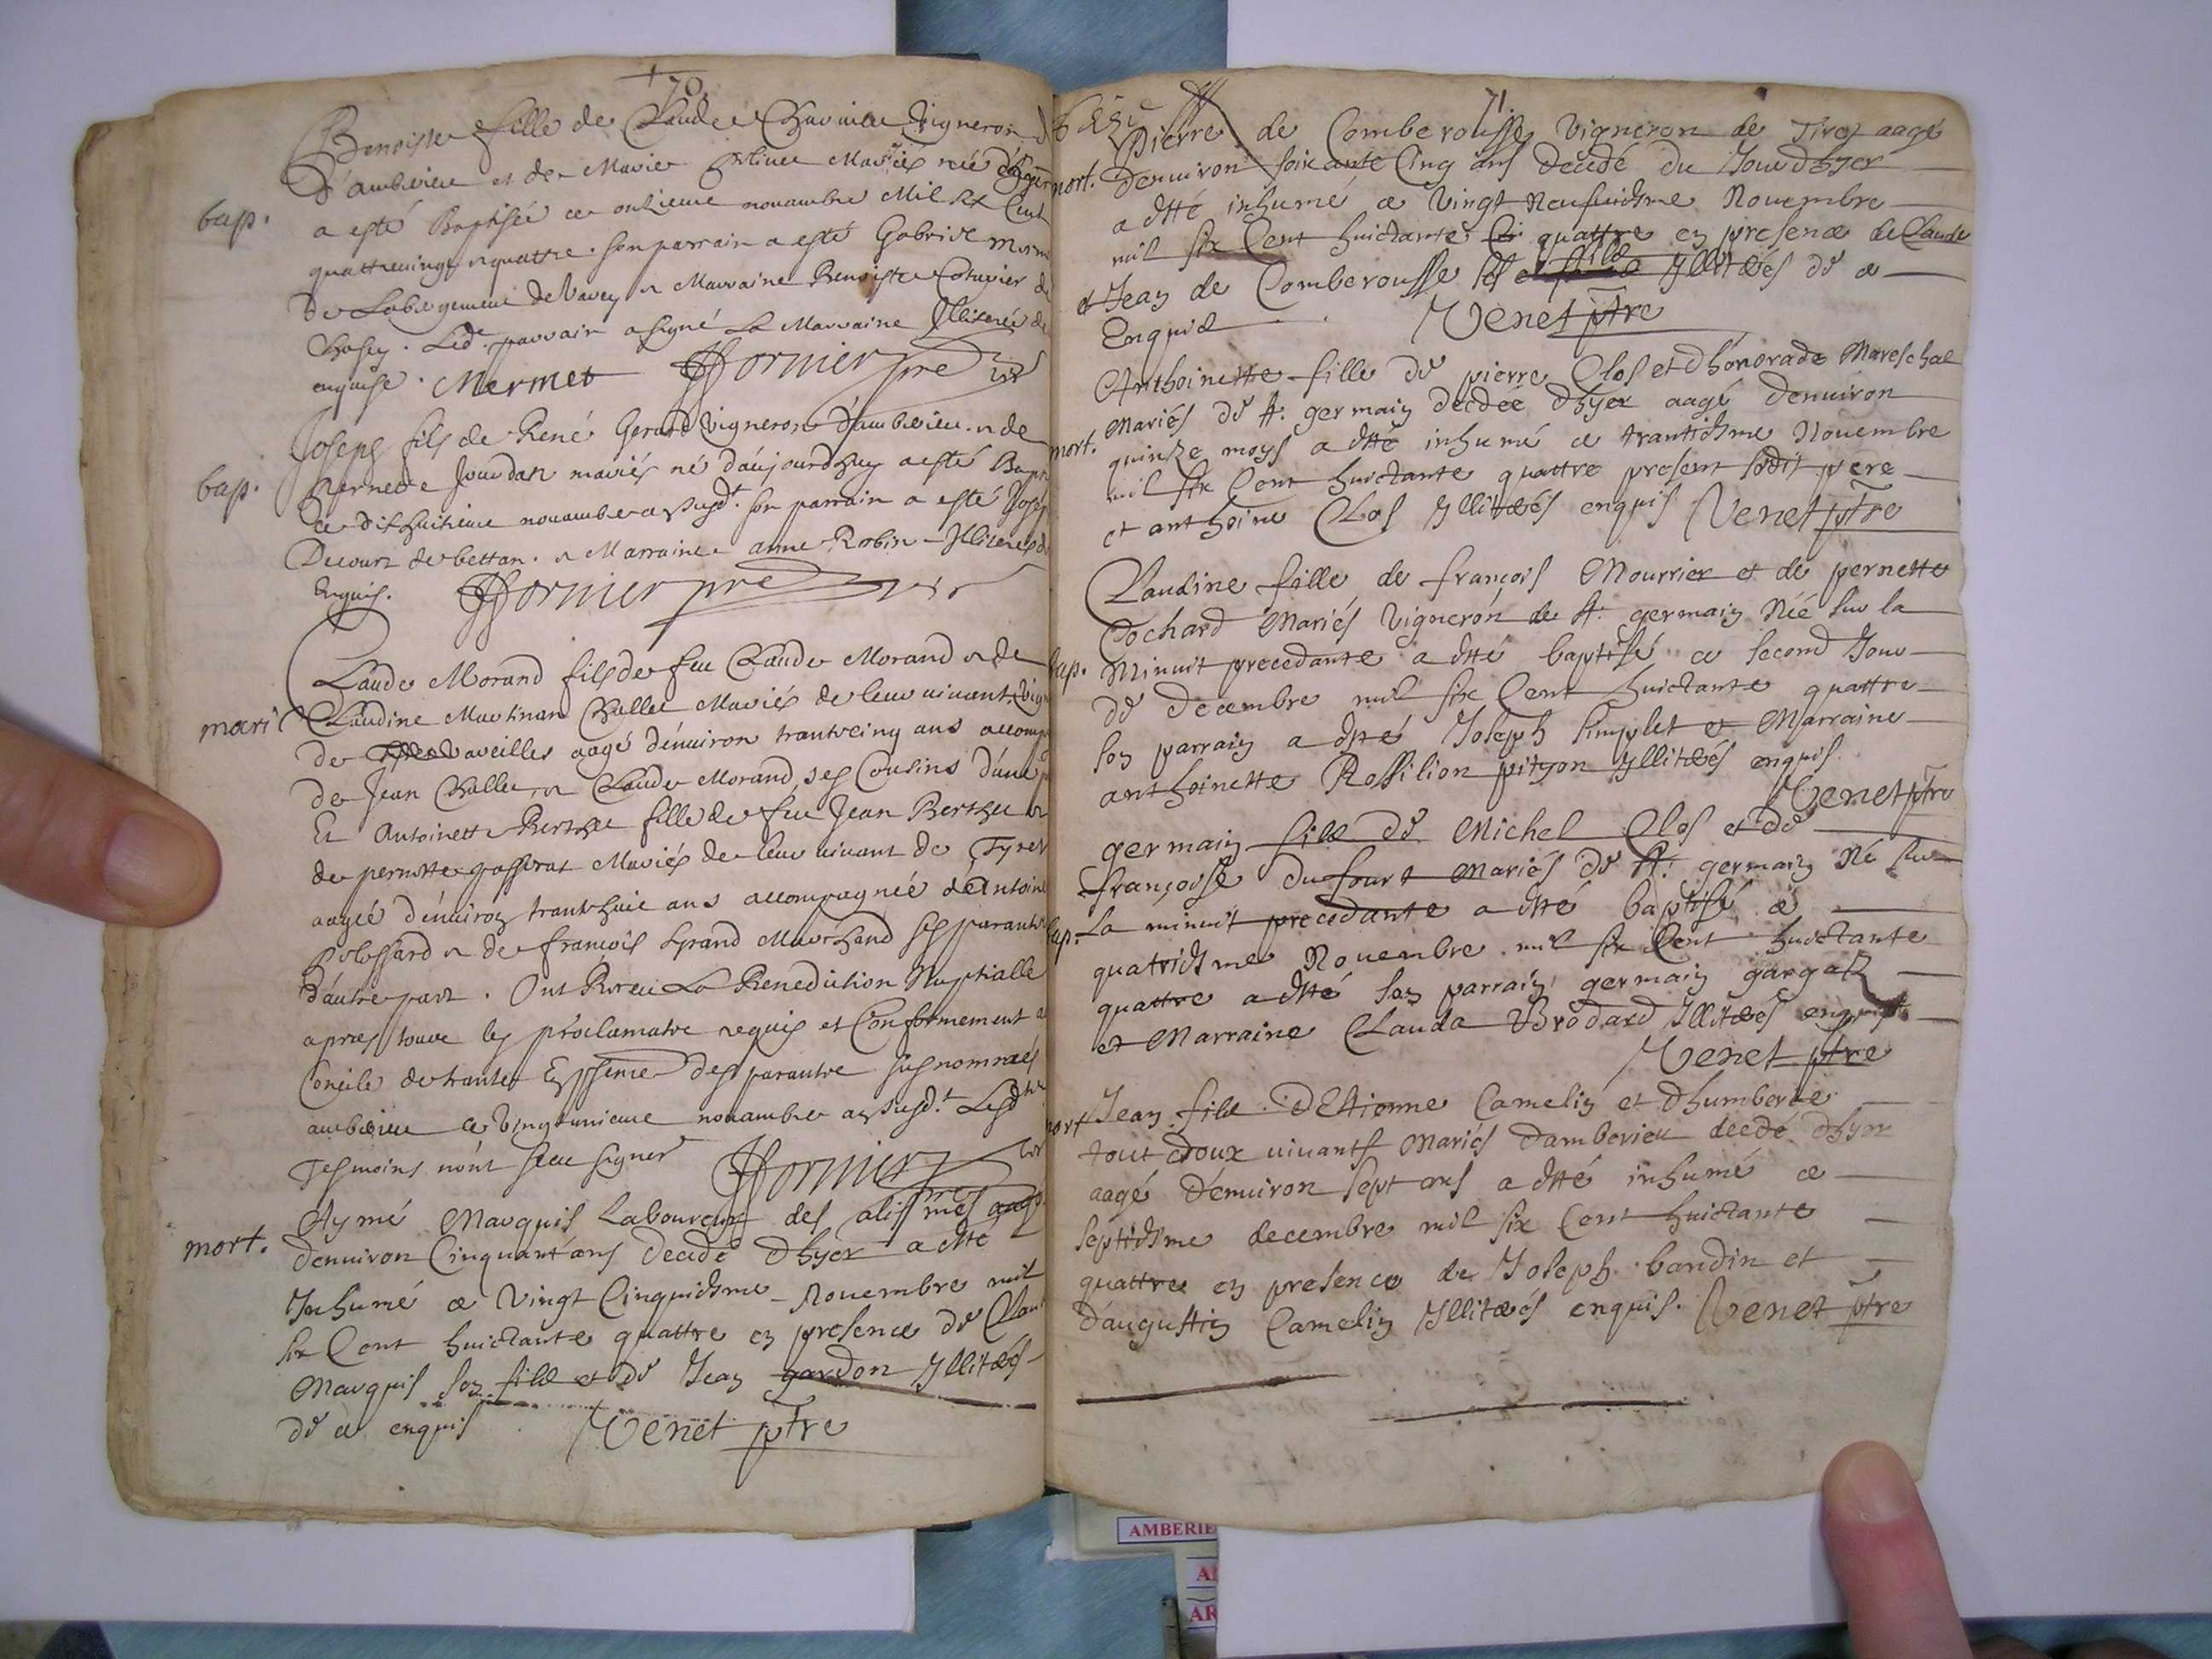 70.
Benoiste fille de Claude Vigneron
d'ambérieu et de Marie Mariés née
bap. a esté Baptisée ce onzieme novambre Mil six Cent
quattrevingt & quattre. son parrain a esté Gabriel
de Labergement de Varey & Marraine Benoiste
. Led. parrain a signé La Marraine Illiterée de
enquise. Mermet Jfornier pre vic
Joseph fils de René Gerard Vigneron d'amberieu. & de
bap. pernette Jourdan mariés né d'aujourdhuy a esté Bapt
ce dixhuitieme novambre an susd. son parrain a esté Josep
Decourt de bettan. & Marraine anne Robin Illiterés de
Enquis. Jfornier pre vic
Claude Morand fils de feu Claude Morand & de
mari Claudine Mariés de leur vivant Vign
de Vareilles aagé d'énuiron trantecinq ans accomp
de Jean & Claude Morand ses Cousins d'une p
Et Antoinette Berthet fille de feu Jean Berthet &
de pernette Mariés de leur vivant de Tyret
aagée d'énuiron trantehuict ans accompagnée de Antoine
& de francois Marchand ses parants
d'autre part. Ont Receu La Benediction Nuptialle
apres toutte les proclamatre requis et Conformement au
Concile de trante En presence des parantre susnommés
ambérieu ce Vingtunieme novambre an susd.t Lesd
Tesmoins n'ont sceu signer Jfornier vic
Aymé Marquis Laboureur des alismes aagé
mort. denuiron Cinquant'ans decedé dhyer a étté
Inhumé ce Vingt Cinquiesme Nouembre mil
six Cent huictante quattre en presence de Clau
Marquis son fils et de Jean gardon Yllitérés
de ce enquis Venet ptre
71.
Pierre de Comberousse Vigneron de Tiret aagé
mort. denuiron soixante Cinq ans decedé du Jourdhyer
a étté inhumé ce Vingt Neufuiesme Nouembre
mil six Cent huictante quattre en presence de Claude
et Jean de Comberousse ses fils Yllitérés de ce
Enquis Venet ptre
Anthoinette fille de pierre Clos et dhonorade Mareschal
Mariés de St. germain decdée dhyer aagé denuiron
mort. quinze moys a étté inhumé ce trantiesme Nouembre
mil six Cent huictante quattre present sodit pere
et anthoine Clos Yllitérés enquis Venet ptre
Claudine fille de françois Mourrier et de pernette
Cochard Mariés Vigneron de St. germain Née sur la
bap. Minuit precedante a étté baptisé ce second Jour
de decembre mil six Cent huictante quattre
son parrain a étté Joseph simplet et Marraine
anthoinette Rossilion pityon Yllitérés enquis.
Venet ptre
germain fils de Michel Clos et de
françoise dufourt Mariés de St. germain Né sur
bap. La minuit precedante a étté baptisé ce
quatriesme Nouembre mil six Cent huictante
quattre a étté son parrain germain
et Marraine Clauda Brodard Yllitérés enquis
Venet ptre
mort Jean fils d'Estienne Camelin et dhumberte
tout deux uiuants Mariés d'amberieu decdé dhyer
aagé d'énuiron sept ans a étté inhumé ce
septiesme decembre mil six Cent huictante
quattre en presence de Joseph bandin et
d'augustin Camelin Yllitérés enquis. Venet ptre
AMBERIE
A
AR